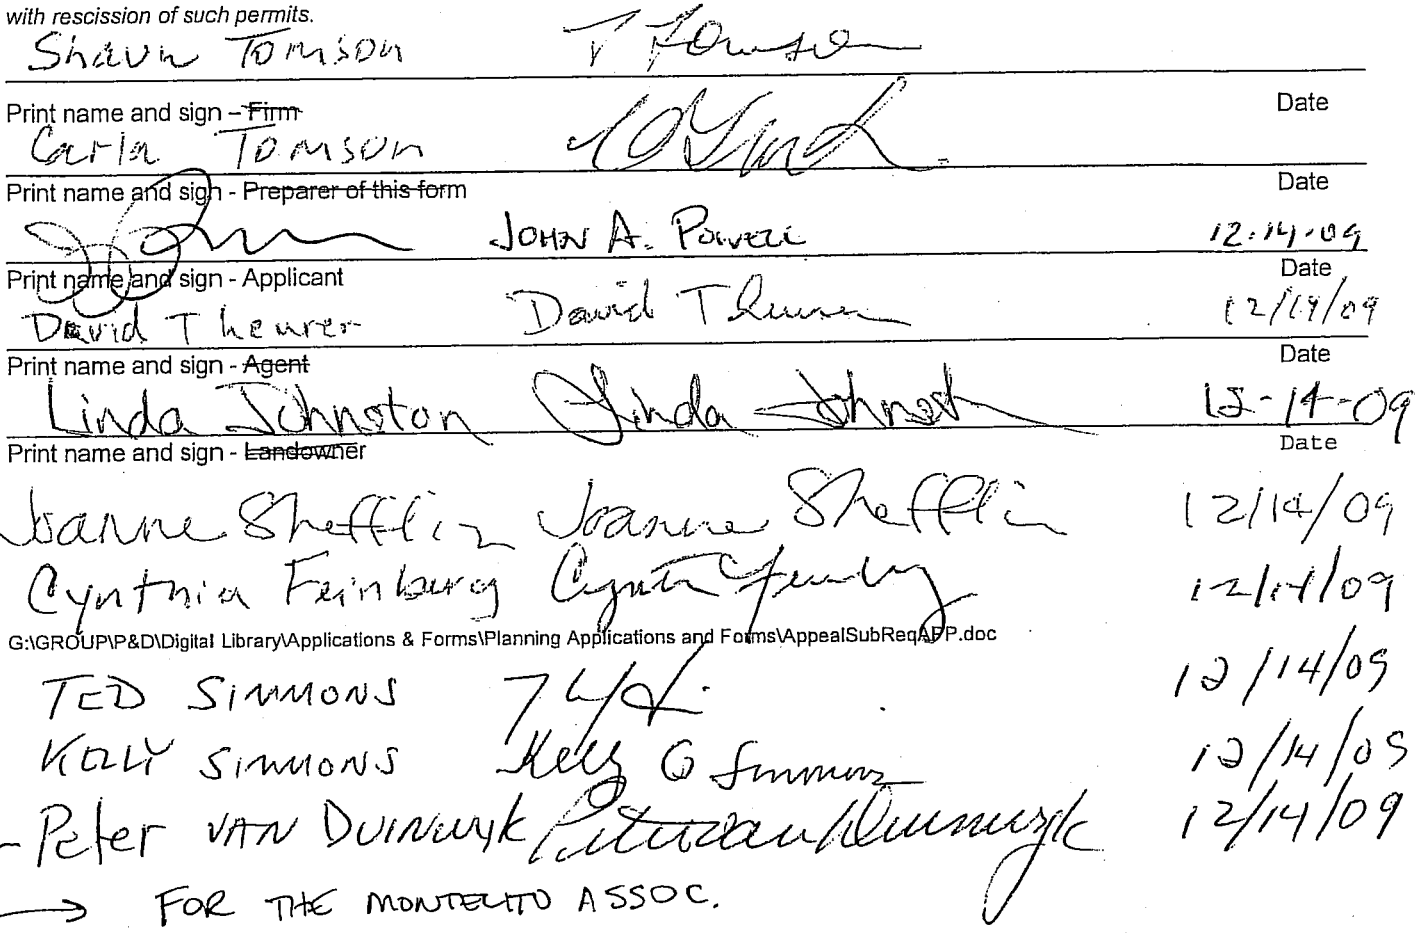 with rescission of such permits.
Shaun Tomson T Tomson
Print name and sign – Firm Date
Carla Tomson
Print name and sign - Preparer of this form Date
JOHN A. POWELL 12.14.09
Print name and sign - Applicant Date
David Theurer David Theurer 12/14/09
Print name and sign - Agent Date
Linda Johnston Linda Johnst 12-14-09
Print name and sign - Landowner Date
Joanne Shefflin Joanne Shefflin 12/14/09
Cynthia Feinberg Cynth Feinberg 12/14/09
G:\GROUP\P&D\Digital Library\Applications & Forms\Planning Applications and Forms\AppealSubReqAPP.doc
TED SIMMONS 12/14/09
KELLY SIMMONS Kelly G Simmons 12/14/09
- Peter VAN DUINWYK Peter van Duinwyk 12/14/09
→ FOR THE MONTECITO ASSOC.